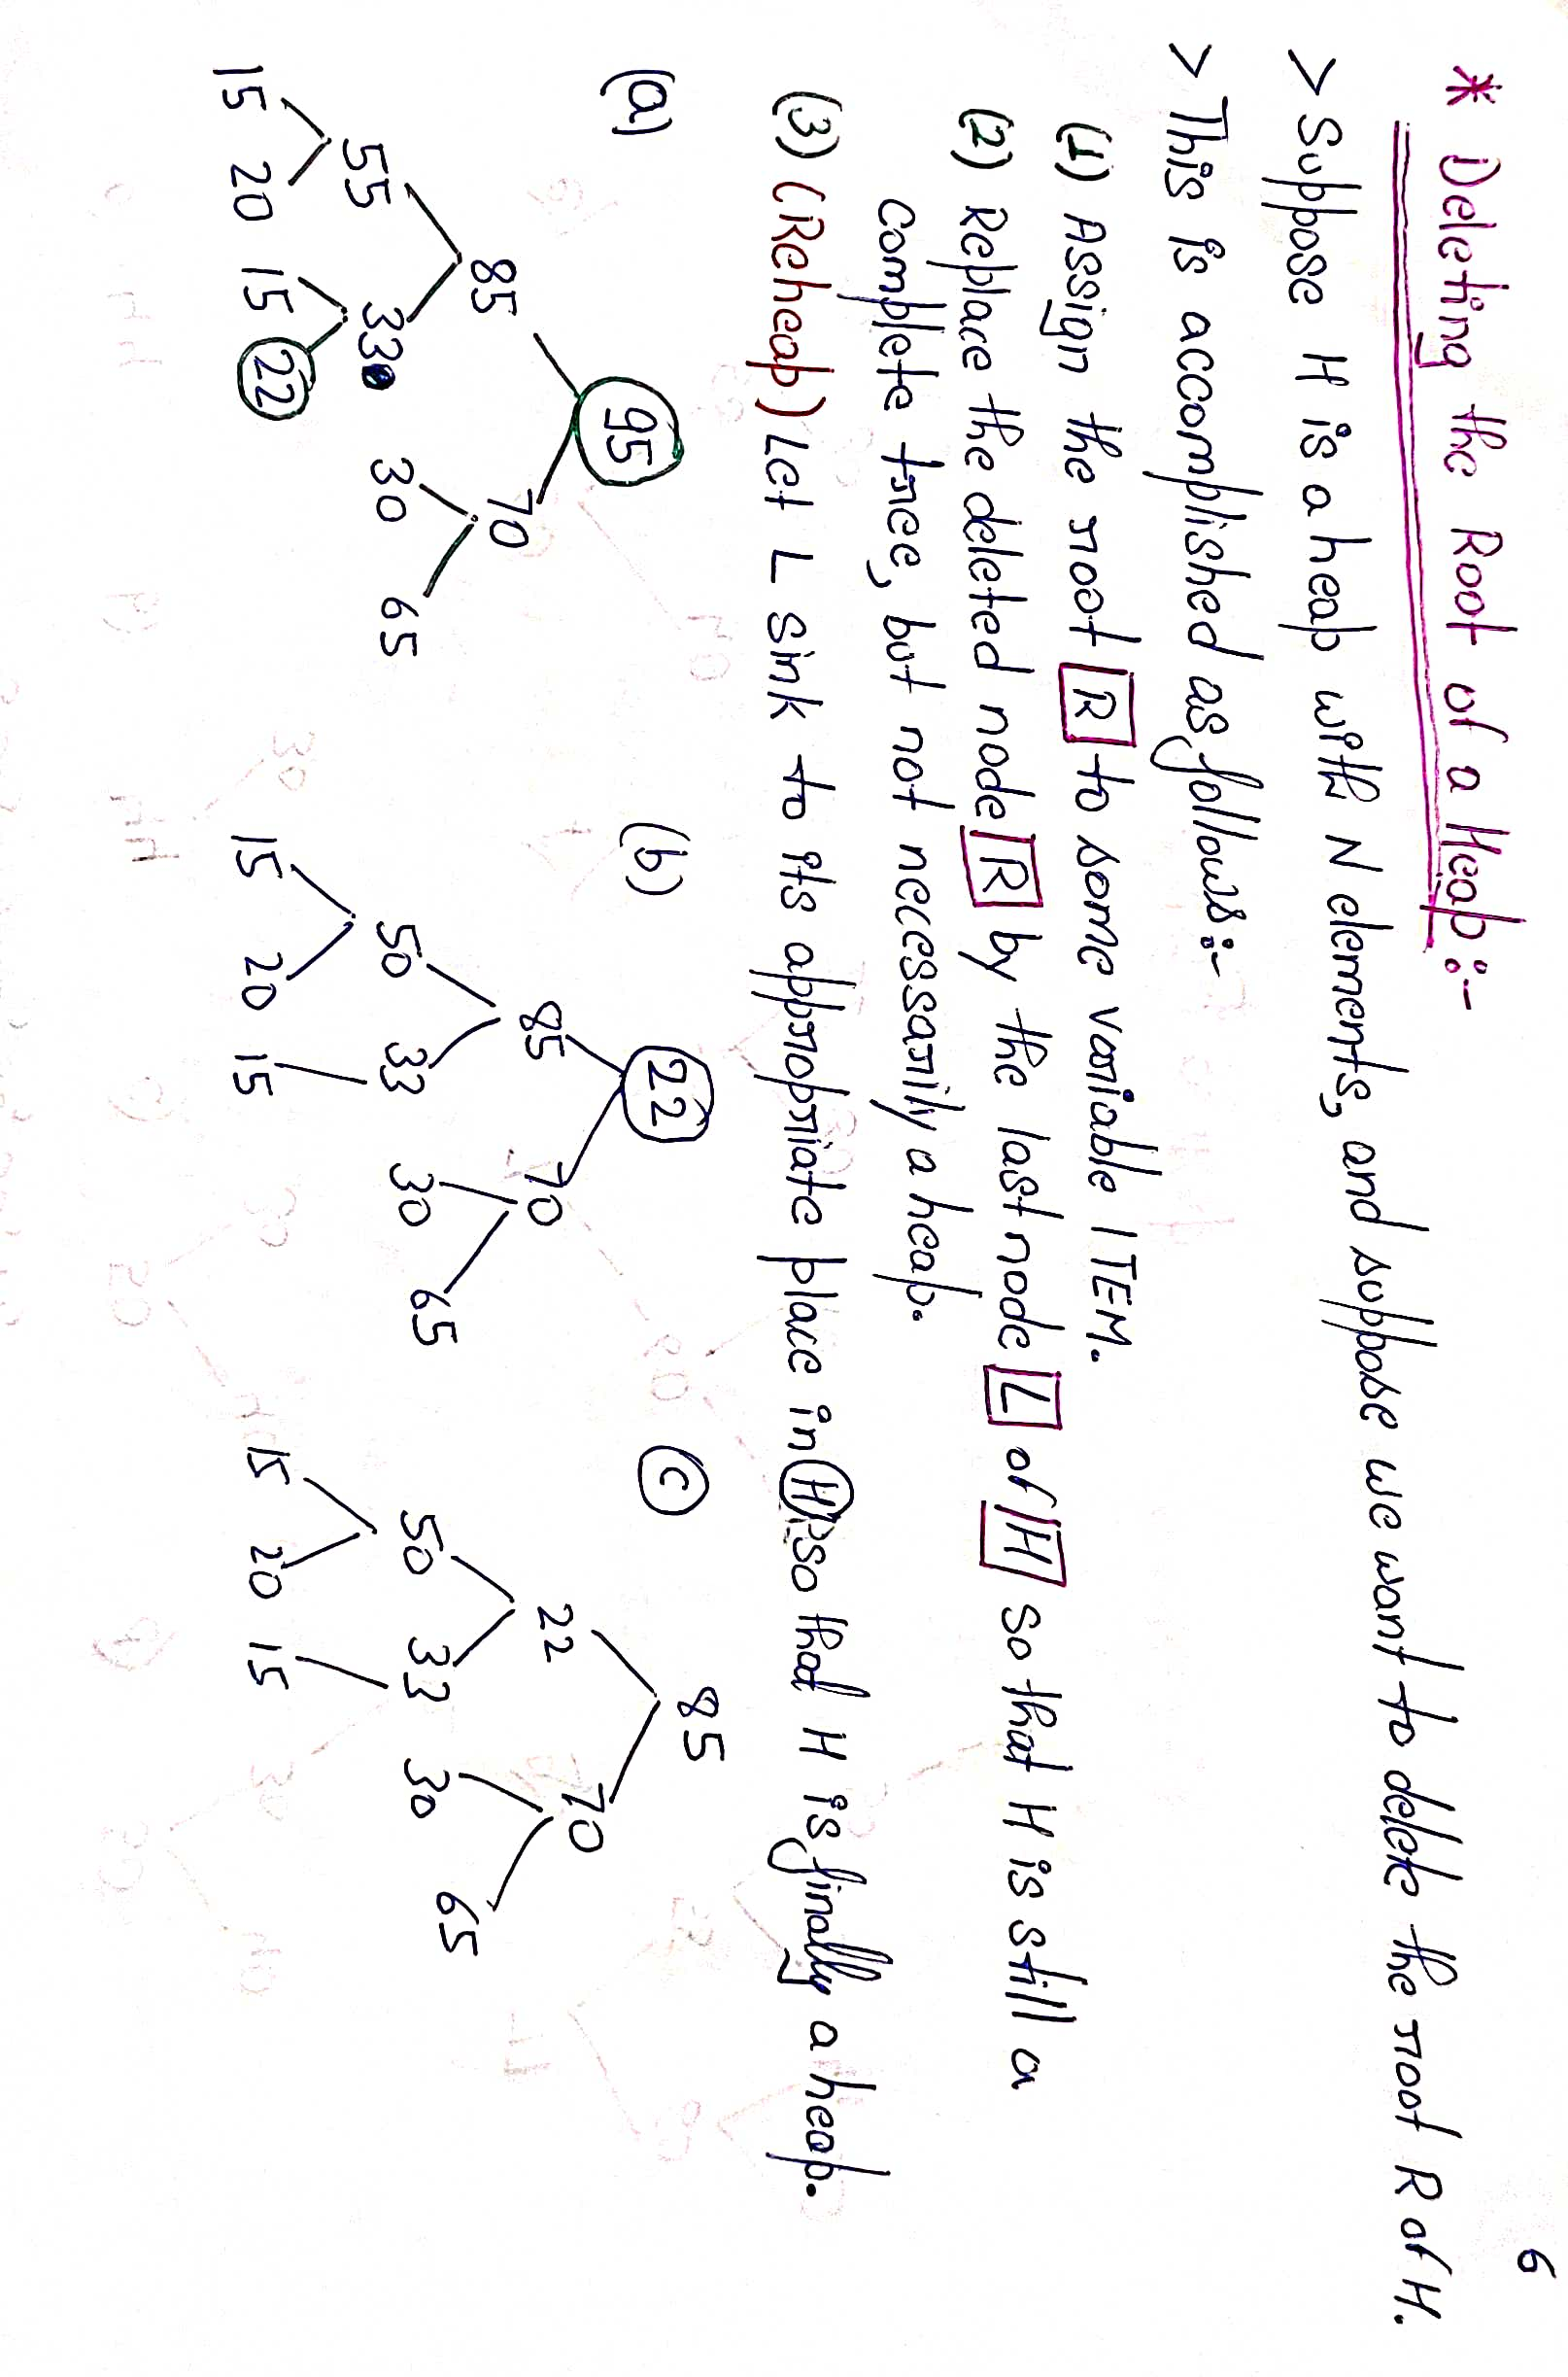 6
* Deleting the Root of a Heap:-
> Suppose H is a heap with N elements, and suppose we want to delete the root R of H.
> This is accomplished as follows:-
(1) Assign the root R to some variable ITEM.
(2) Replace the deleted node R by the last node L of H so that H is still a
complete tree, but not necessarily a heap.
(3) (Reheap) Let L sink to its appropriate place in H so that H is finally a heap.
(a)
95
85 70
55 33 30 65
15 20 15 22
(b)
22
85 70
50 33 30 65
15 20 15
(c)
85
22 70
50 33 30 65
15 20 15